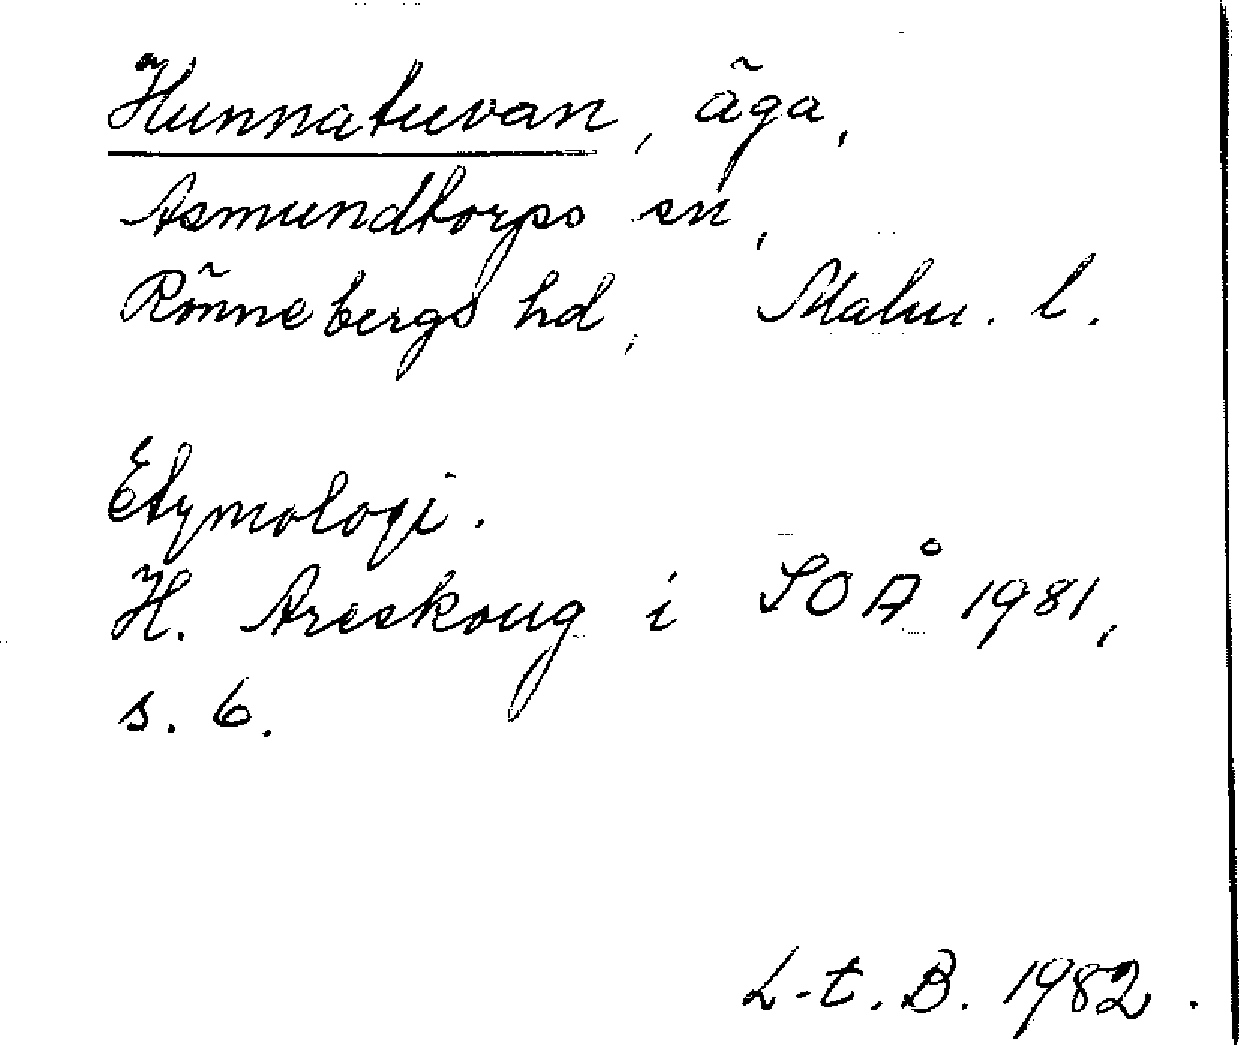 Hunnatuvan, äga,
Asmundtorps sn,
Rönnebergs hd, Malm. l.
Etymologi.
H. Areskoug i SOÅ 1981,
s. 6.
L-t. B. 1982.